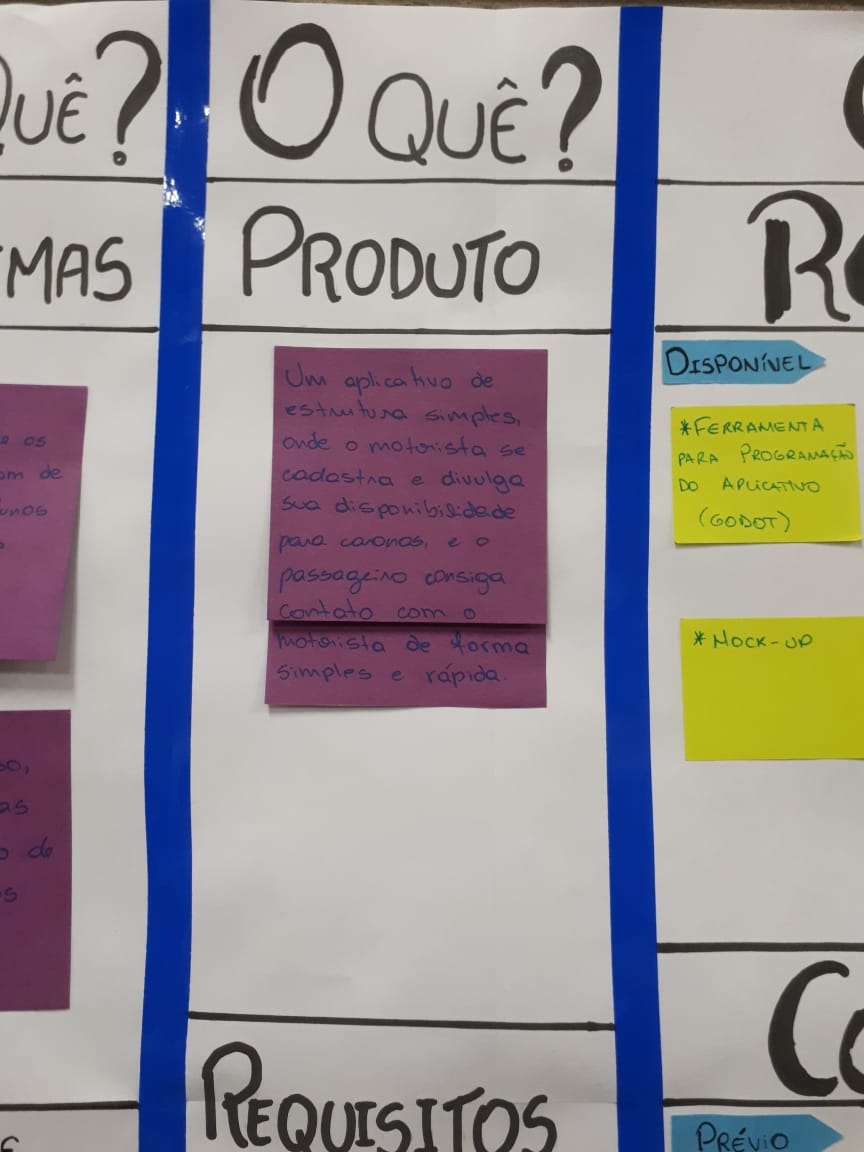 QUÊ?
MAS
os
om de
unos
o,
as
o de
s
O QUÊ?
PRODUTO
Um aplicativo de
estrutura simples,
onde o motorista se
cadastra e divulga
sua disponibilidade
para caronas, e o
passageiro consiga
contato com o
motorista de forma
simples e rápida.
REQUISITOS
DISPONÍVEL
*FERRAMENTA
PARA PROGRAMAÇÃO
DO APLICATIVO
(GODOT)
*MOCK-UP
PRÉVIO